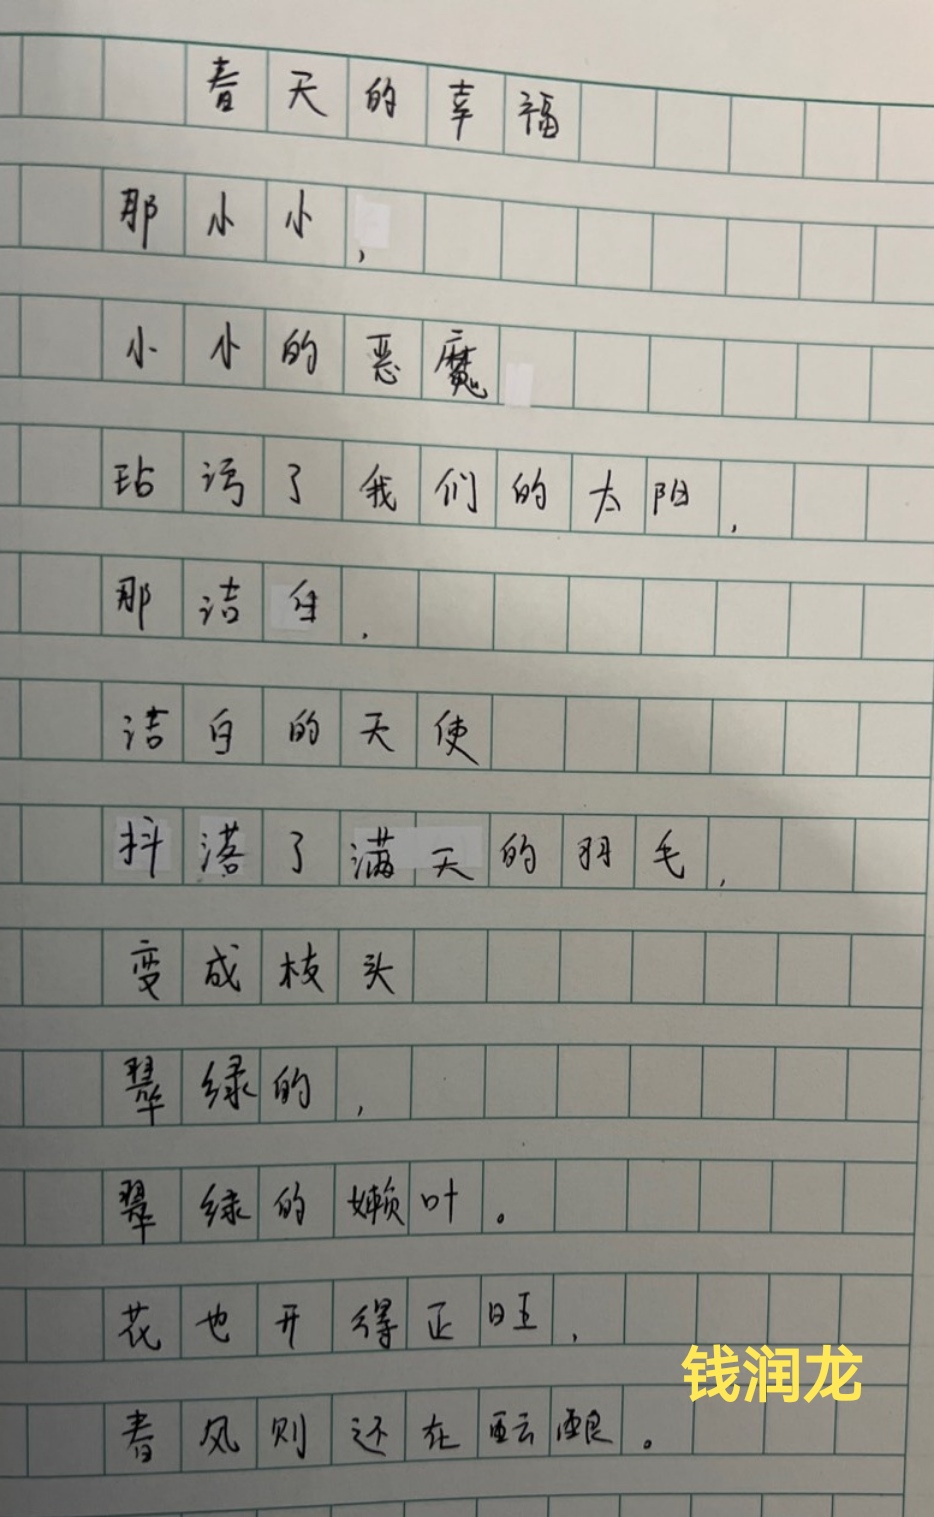 春天的幸福
那小小,
小小的恶魔
玷污了我们的太阳,
那洁白,
洁白的天使
抖落了满天的羽毛,
变成枝头
翠绿的,
翠绿的嫩叶。
花也开得正旺,
钱润龙
春风则还在酝酿。